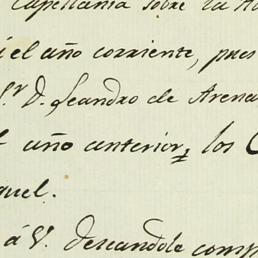 Capellania sobre la
el año corriente, pues
Sr. D. Leandro de Arena
año anterior, los
quel.
á V. deseandole comp